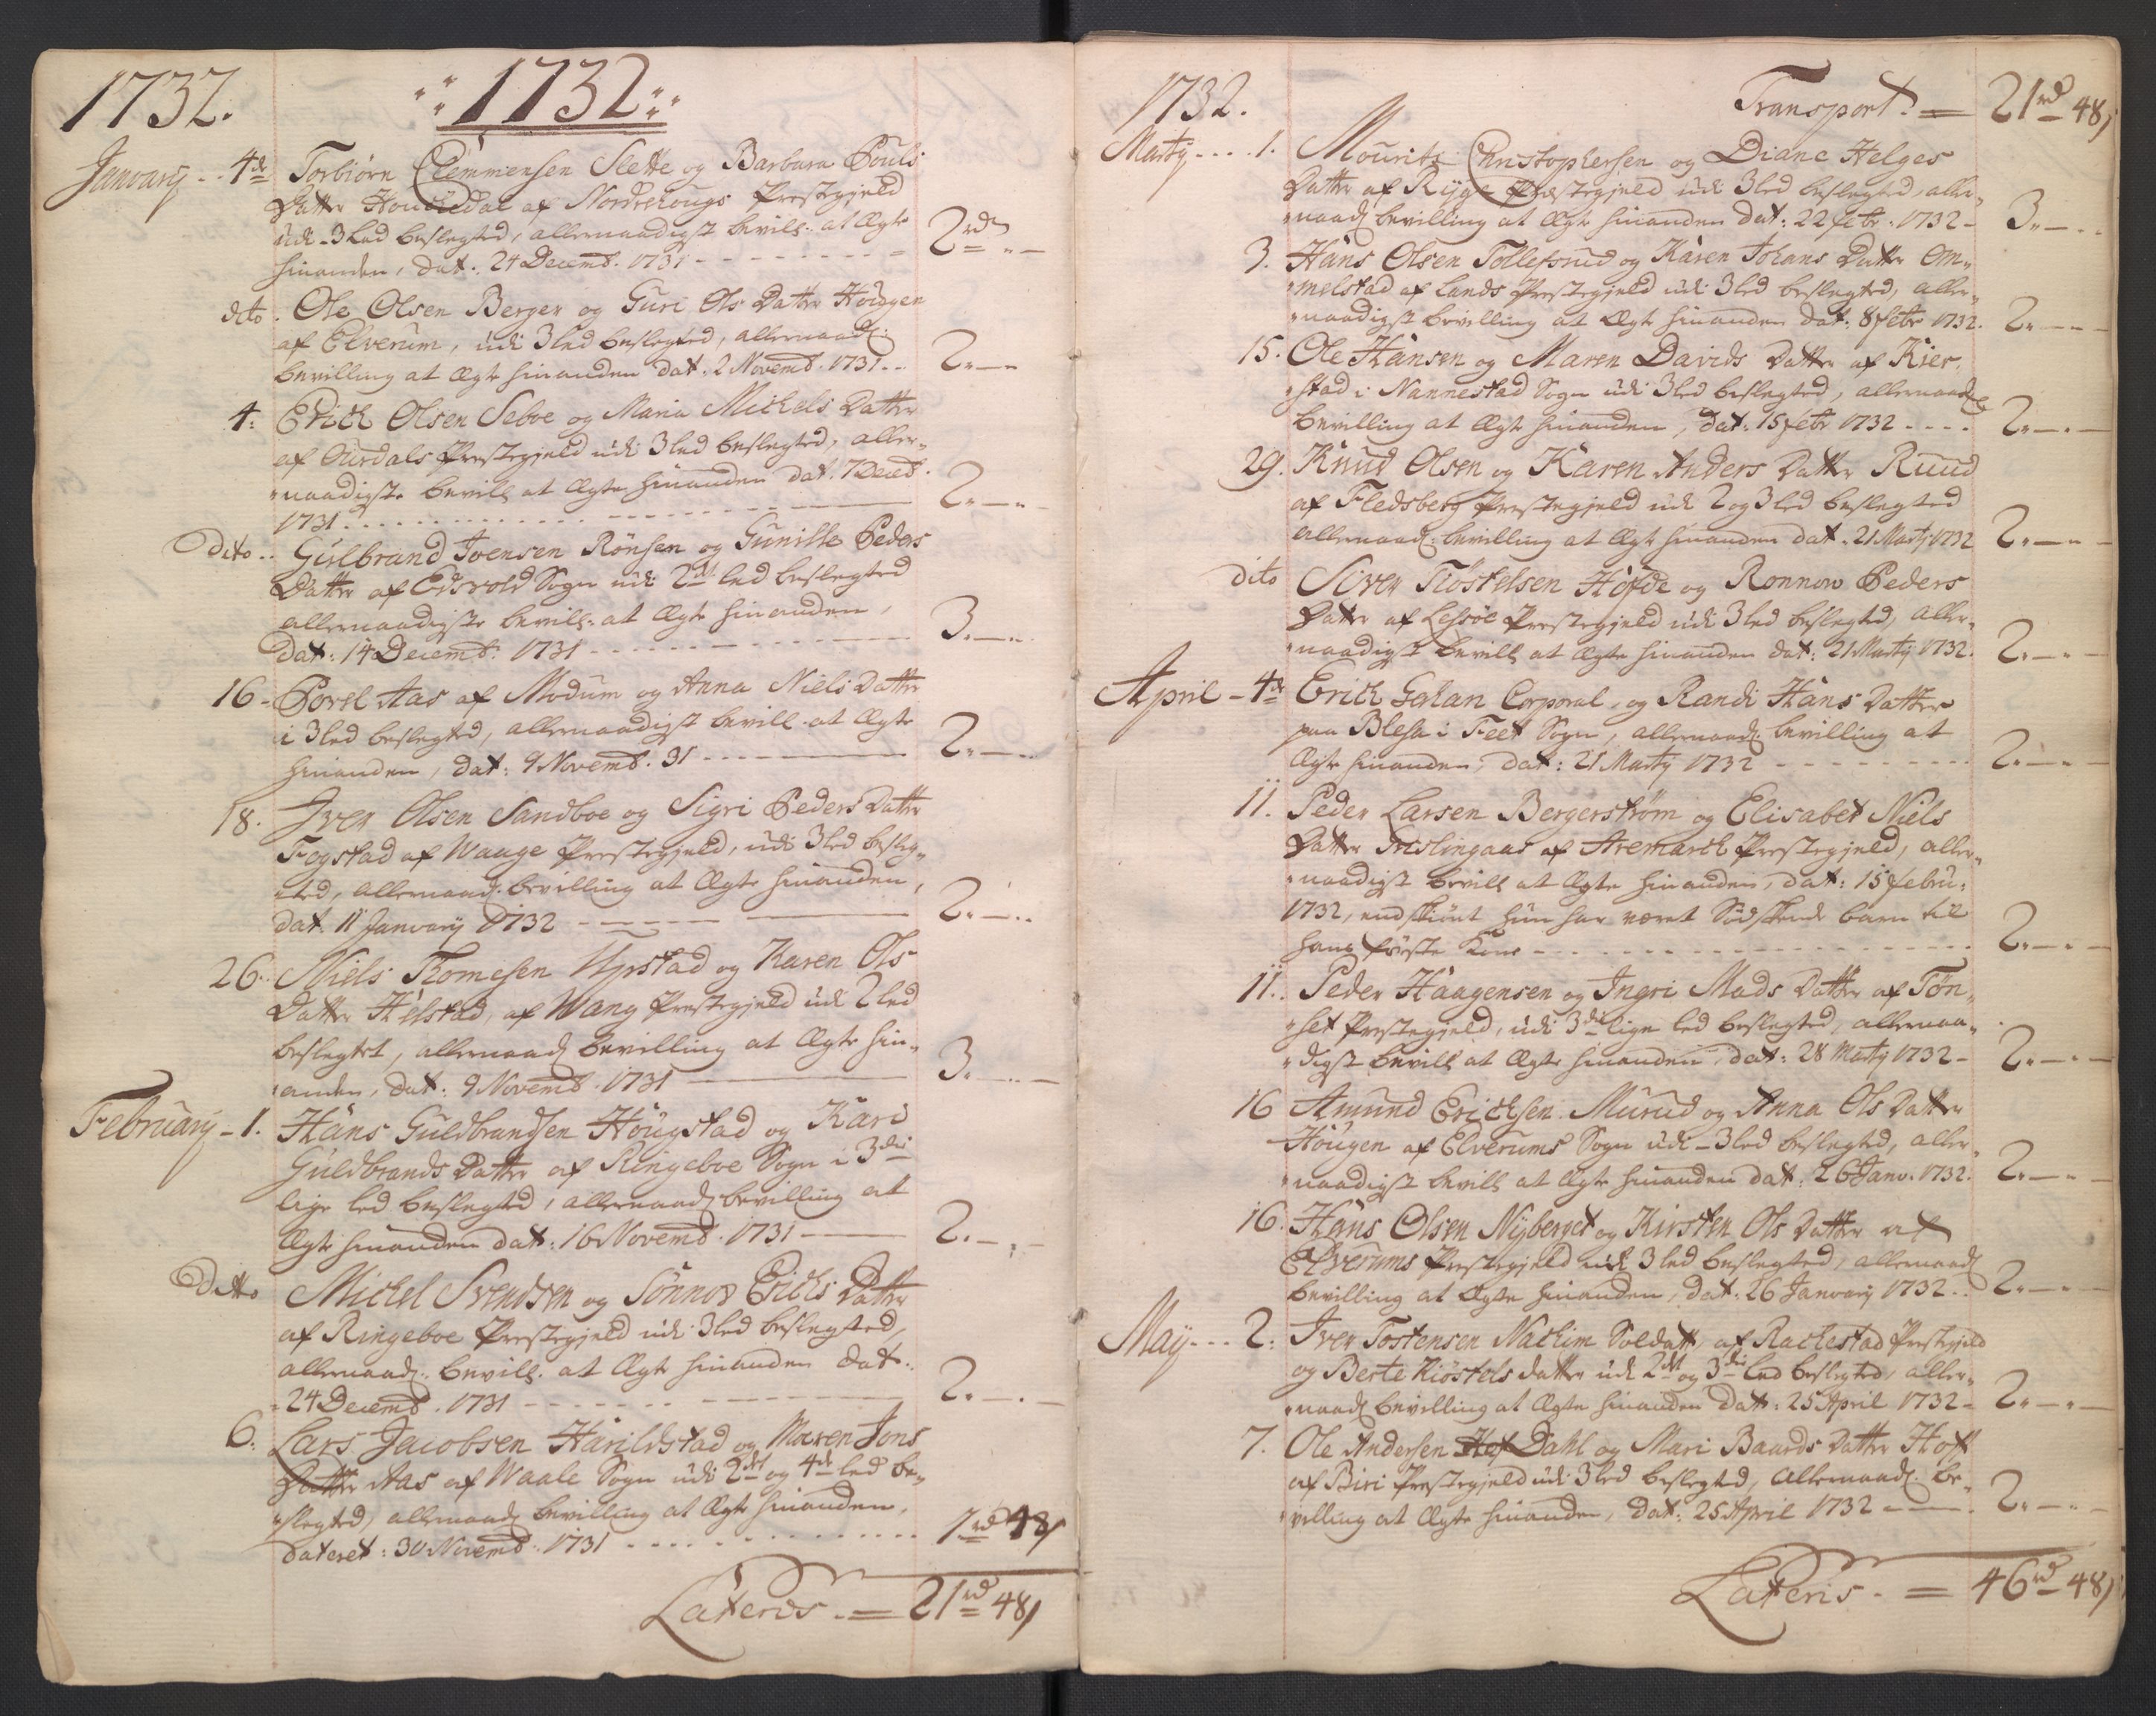 1732.
∴1732∴
Januarij - - 4de Torbiörn Clemmensen Slette og Barbara Pouls
Datter af Nordrehougs Prestegjeld
udi 3 Led beslegted, allernaadigst bevilg: at Ægte
hinanden, dat: 24 Decemb. 1731 - - - 2rd „ —
dito. Ole Olsen Berger og Guri Ols Datter Hougen
af Elverum, udi 3 led beslegted, allernaad:
bevilling at Ægte hinanden dat: 2 Novemb. 1731 - - 2. — „
4. Erich Olsen Seboe og Maria Michels Datter
af Ourdals Prestegjeld udi 3 led beslegted, aller-
naadigste bevilg at Ægte hinanden dat. 7 Decemb.
1731 - - - 2. — „
Dito - - Gulbrand Ivensen Rönsen og Gunille Peders
Datter af Edsvold Sogn udi 2det led beslegted
allernaadigste bevilg: at Ægte hinanden,
dat: 14 Decemb. 1731 - - - 3. — „
16 - Povel Aas af Modum og Anna Niels Datter
i 3 led beslegted, allernaadigst bevilg at Ægte
hinanden, dat: 9 Novemb. 31 - - - 2. — „
18. Iver Olsen Sandboe og Sigri Peders Datter
Fogstad af Waage Prestegjeld, udi 3 led besleg-
ted, allernaad. bevilling at Ægte hinanden,
dat. 11 Januarij 1732 - - - 2. — „
26. Niels Thomesen Upstad og Karen Ols
Datter Helstad, af Wang Prestegjeld udi 2 led
beslegtet, allernaad bevilling at Ægte hin-
anden, dat: 9 Novemb. 1731 - - - 3. — „
Februarij - 1. Hans Guldbrandsen Hougstad og Kari
Guldbrands Datter af Ringeboe Sogn i 3die
lige led beslegted, allernaad bevilling at
Ægte hinanden dat: 16 Novemb. 1731 - - - 2. — „
Ditto Michel Svendsen og Sönnov Erichs Datter
af Ringeboe Prestegjeld udi 3 led beslegted,
allernaad: bevilg. at Ægte hinanden dat:
24 Decemb. 1731 - - - 2. — „
6. Lars Jacobsen Harildstad og Maren Jons
Datter Aas af Waale Sogn udi 2det og 4de led be-
slegted, allernaad bevilling at Ægte hinanden,
dateret: 30 Novemb. 1731 - - - 1rd 48
Lateris - = 21rd 48

1732. Transport. = 21rd 48
Martij - - - 1. Mouritz Christophersen og Diane Helges
Datter af Ryge Prestegjeld udi 3 led beslegted, aller-
naad bevilling at Ægte hinanden dat: 22 febr. 1732 - 3. — „
3. Hans Olsen Tollefsrud og Karen Johans Datter Om-
melstad af Lands Prestegjeld udi 3 led beslegted, aller-
naadigst bevilling at Ægte hinanden dat: 8 febr 1732. 2. — „
15. Ole Hansen og Maren Davids Datter af Kier-
stad i Nannestad Sogn udi 3 led beslegted, allernaad
bevilling at Ægte hinanden, dat: 15 febr 1732 - - - 2. — „
29. Knud Olsen og Karen Anders Datter Ruud
af Fledsberg Prestegjeld udi 2 og 3 led beslegted
allernaad: bevilling at Ægte hinanden dat. 21 Martij 1732 2. — „
dito Siver Tiöstelsen Hofde og Ronnow Peders
Datter af Lessöe Prestegjeld udi 3 led beslegted, aller-
naadigst bevilg at Ægte hinanden dat: 21 Martij 1732. 2. — „
April - 4de Erich Corporal, og Randi Hans Datter
paa Blesa i Feet Sogn, allernaad: bevilling at
Ægte hinanden, dat: 21 Martij 1732 - - - 2. — „
11. Peder Larsen Bergerström og Elisabet Niels
Datter af Aremarck Prestegjeld, aller-
naadigst bevilg at Ægte hinanden, dat: 15 febru:
1732, endskiönt hun har været Södskende barn til
hans förste Kone - - - 2. — „
11. Peder Haagensen og Ingri Mads Datter af Tön-
set Prestegjeld, udi 3die lige led beslegted, allernaa-
digst bevilg at Ægte hinanden, dat: 28 Martij 1732 - 2. — „
16 Amund Erichsen Murud og Anna Ols Datter
Hougen af Elverums Sogn udi 3 led beslegted, aller-
naadigst bevilg at Ægte hinanden dat: 26 Janv. 1732. 2. — „
16. Hans Olsen Nyberget og Kirsten Ols Datter af
Elverums Prestegjeld udi 3 led beslegted, allernaad
bevilling at Ægte hinanden, dat: 26 Januarij 1732. 2. — „
Maij - - - 2. Iver Tostensen Nachim Soldatt, af Rachestad Prestegjeld
og Berte Kiöstels datter udi 2det og 3die led beslegted, aller-
naad bevilling at Ægte hinanden dat: 25 April 1732 - 2. — „
7. Ole Andersen Dahl og Mari Baards Datter Hoff
af Biri Prestegjeld udi 3 led beslegted, allernaad: be-
villing at Ægte hinanden, dat: 25 April 1732 - - 2. — „
Lateris - = 46rd 48